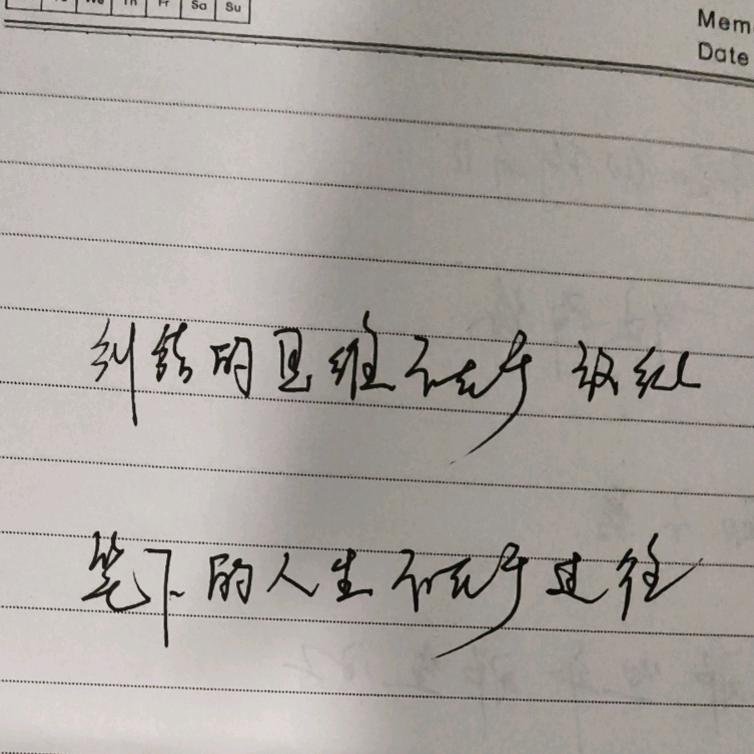 We Th Fr Sa Su
Mem
Date
纠结的思维不在于
笔下的人生不在于过往